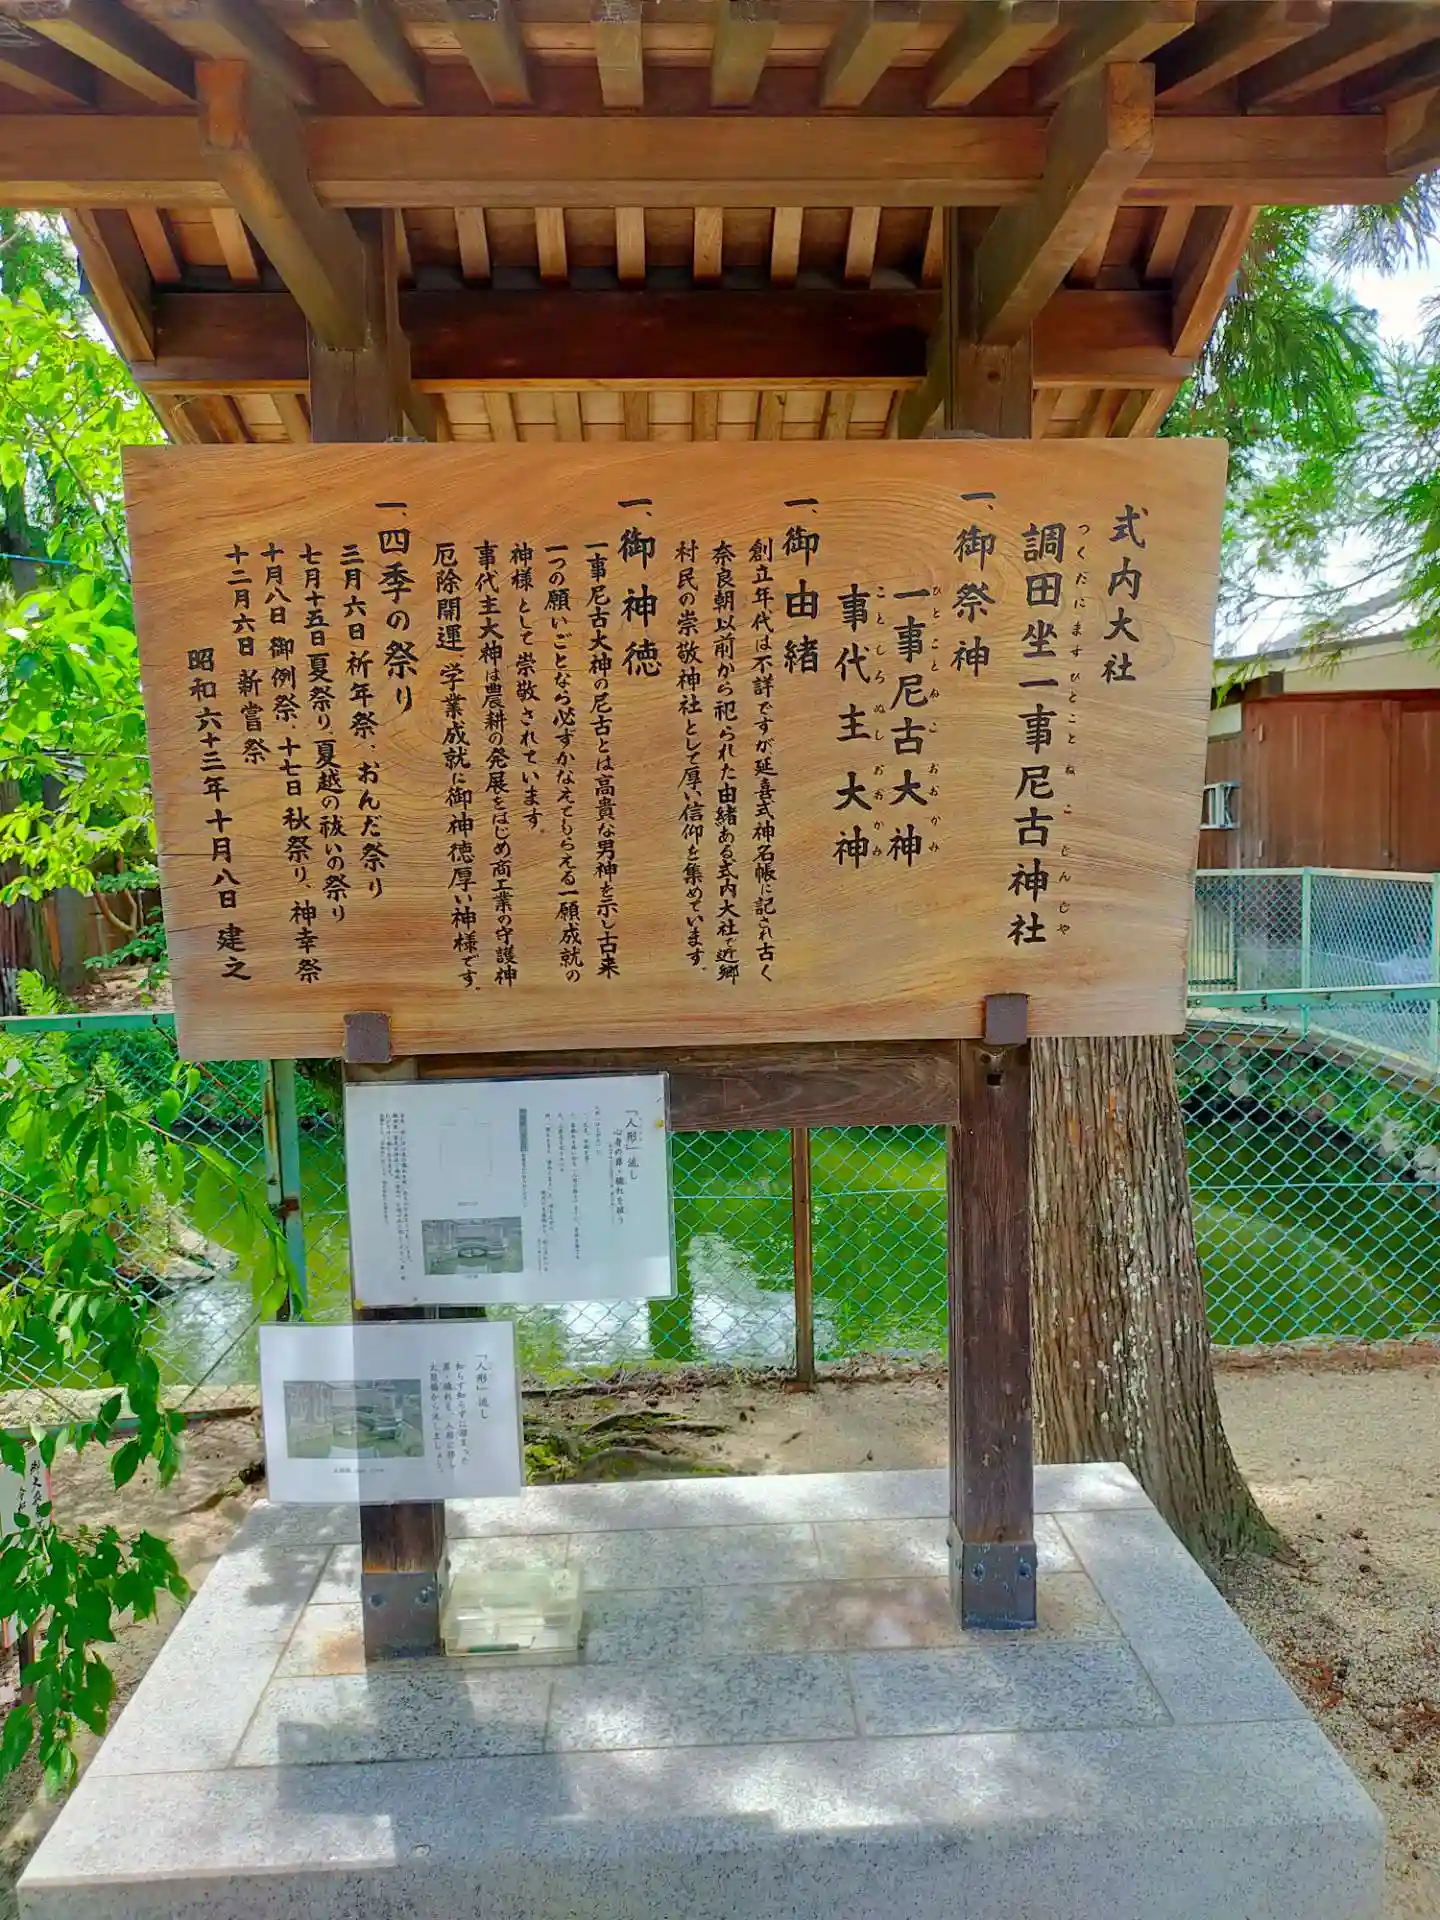 式内大社
調田坐一事尼古神社
つくだにますひとことねこじんじゃ
一、御祭神
一事尼古大神
ひとことねこおおかみ
事代主大神
ことしろぬしおおかみ
一、御由緒
創立年代は不詳ですが延喜式神名帳に記され古く
奈良朝以前から祀られた由緒ある式内大社で近郷
村民の崇敬神社として厚い信仰を集めています。
一、御神徳
一事尼古大神の尼古とは高貴な男神を示し古来
一つの願いごとなら必ずかなえてもらえる一願成就の
神様として崇敬されています。
事代主大神は農耕の発展をはじめ商工業の守護神
厄除開運、学業成就に御神徳厚い神様です。
一、四季の祭り
三月六日祈年祭、おんだ祭り
七月十五日夏祭り、夏越の祓いの祭り
十月八日御例祭、十七日秋祭り、神幸祭
十二月六日新嘗祭
昭和六十三年十月八日建之
「人形」流し
心身の罪・穢れを祓う
「人形」流し
知らず知らずに溜まった
罪・穢れを、人形に移し
太鼓橋から流しましょう。